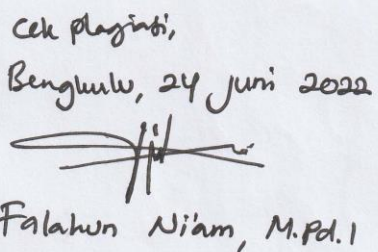 Cek plagiasi,
Bengkulu, 24 Juni 2022
Falahun Ni'am, M.Pd.I